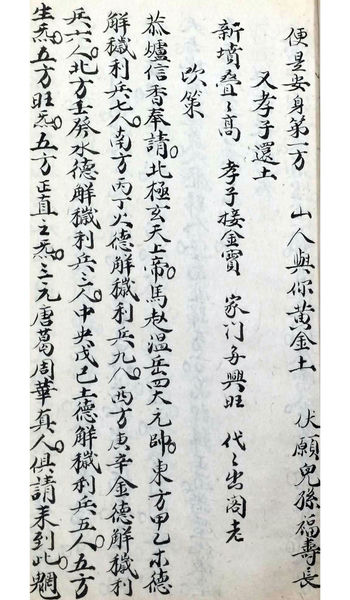 便是安身第一方　山人與你黃金土　伏願兒孫福壽長
又孝子還土
新墳叠〻高　孝子接金寶　家门每興旺　代〻出阁老
吹筞
恭爐信香奉請北極玄天上帝馬赵温岳四大元帥東方甲乙木德
解穢利兵七人南方丙丁火德解穢利兵九人西方庚辛金德解穢利
兵六人北方壬癸水德解穢利兵三人中央戊己土德解穢利兵五人五方
生炁五方旺炁五方正直之炁三元唐葛周華真人俱請来到此魍